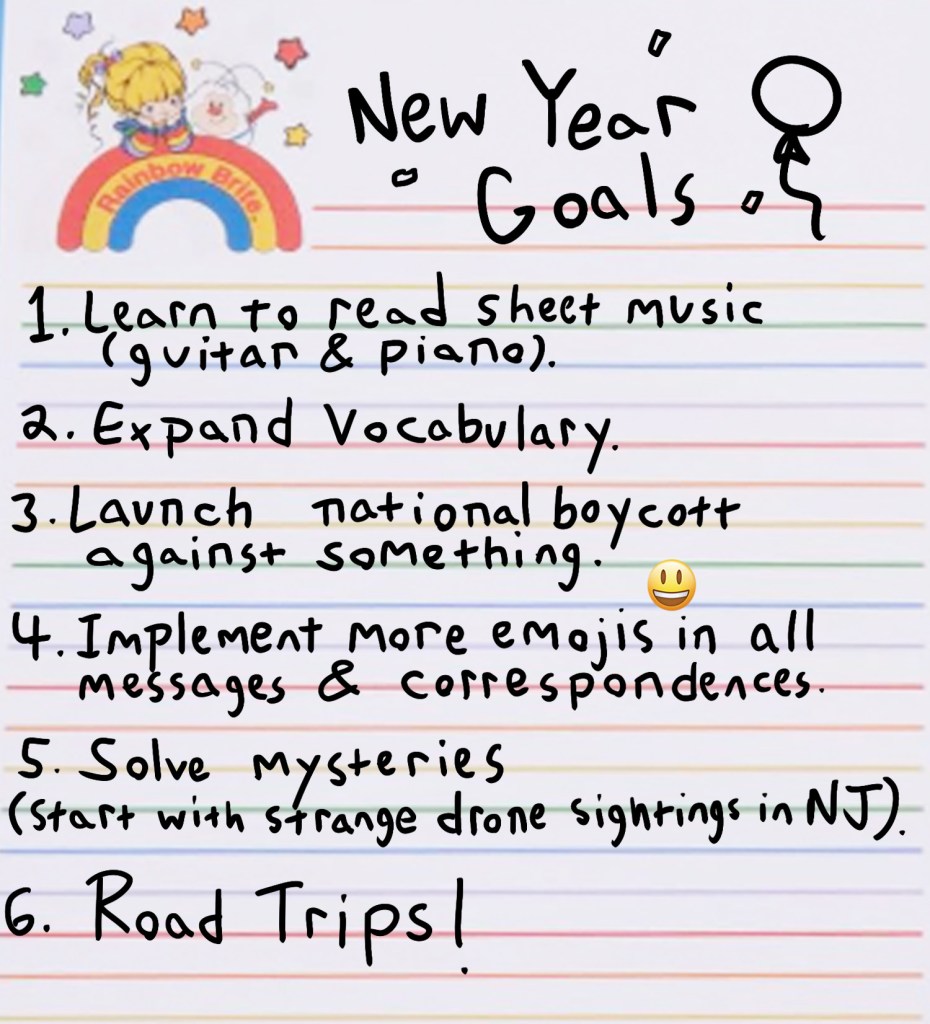 Rainbow Brite.
New Year
Goals
1. Learn to read sheet music
(guitar & piano).
2. Expand Vocabulary.
3. Launch national boycott
against something.
4. Implement more emojis in all
messages & correspondences.
5. Solve mysteries
(start with strange drone sightings in NJ).
6. Road Trips!